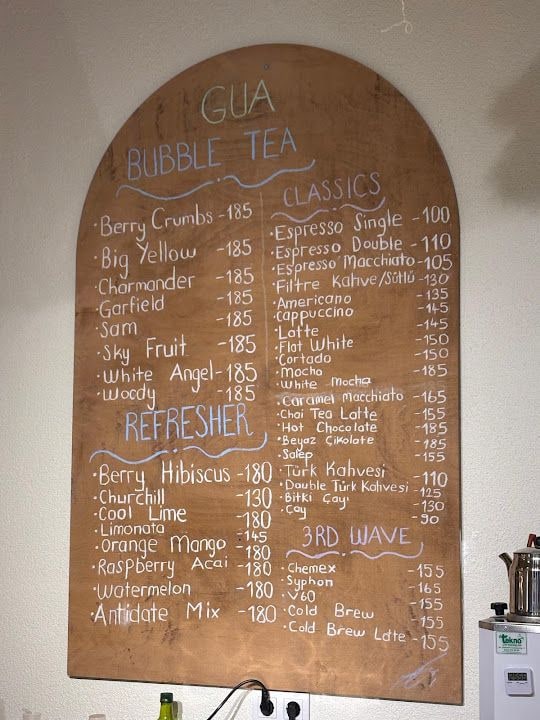 GUA
BUBBLE TEA
·Berry Crumbs -185
·Big Yellow -185
·Charmander -185
·Garfield -185
·Sam -185
·Sky Fruit -185
·White Angel -185
·Woody -185
REFRESHER
·Berry Hibiscus -180
·Churchill -130
·Cool Lime -180
·Limonata -145
·Orange Mango -180
·Raspberry Acai -180
·Watermelon -180
·Antidate Mix -180
CLASSICS
·Espresso Single -100
·Espresso Double -110
·Espresso Macchiato -105
·Filtre Kahve/Sütlü -130
·Americano -135
·Cappuccino -145
·Latte -145
·Flat White -150
·Cortado -150
·Mocha -185
·White Mocha
·Caramel Macchiato -165
·Chai Tea Latte -155
·Hot Chocolate -185
·Beyaz Çikolate -185
·Salep -155
·Türk Kahvesi -110
·Double Türk Kahvesi -125
·Bitki Çayı -130
·Çay -90
3RD WAVE
·Chemex -155
·Syphon -165
·V60 -155
·Cold Brew -155
·Cold Brew Latte -155
tekno